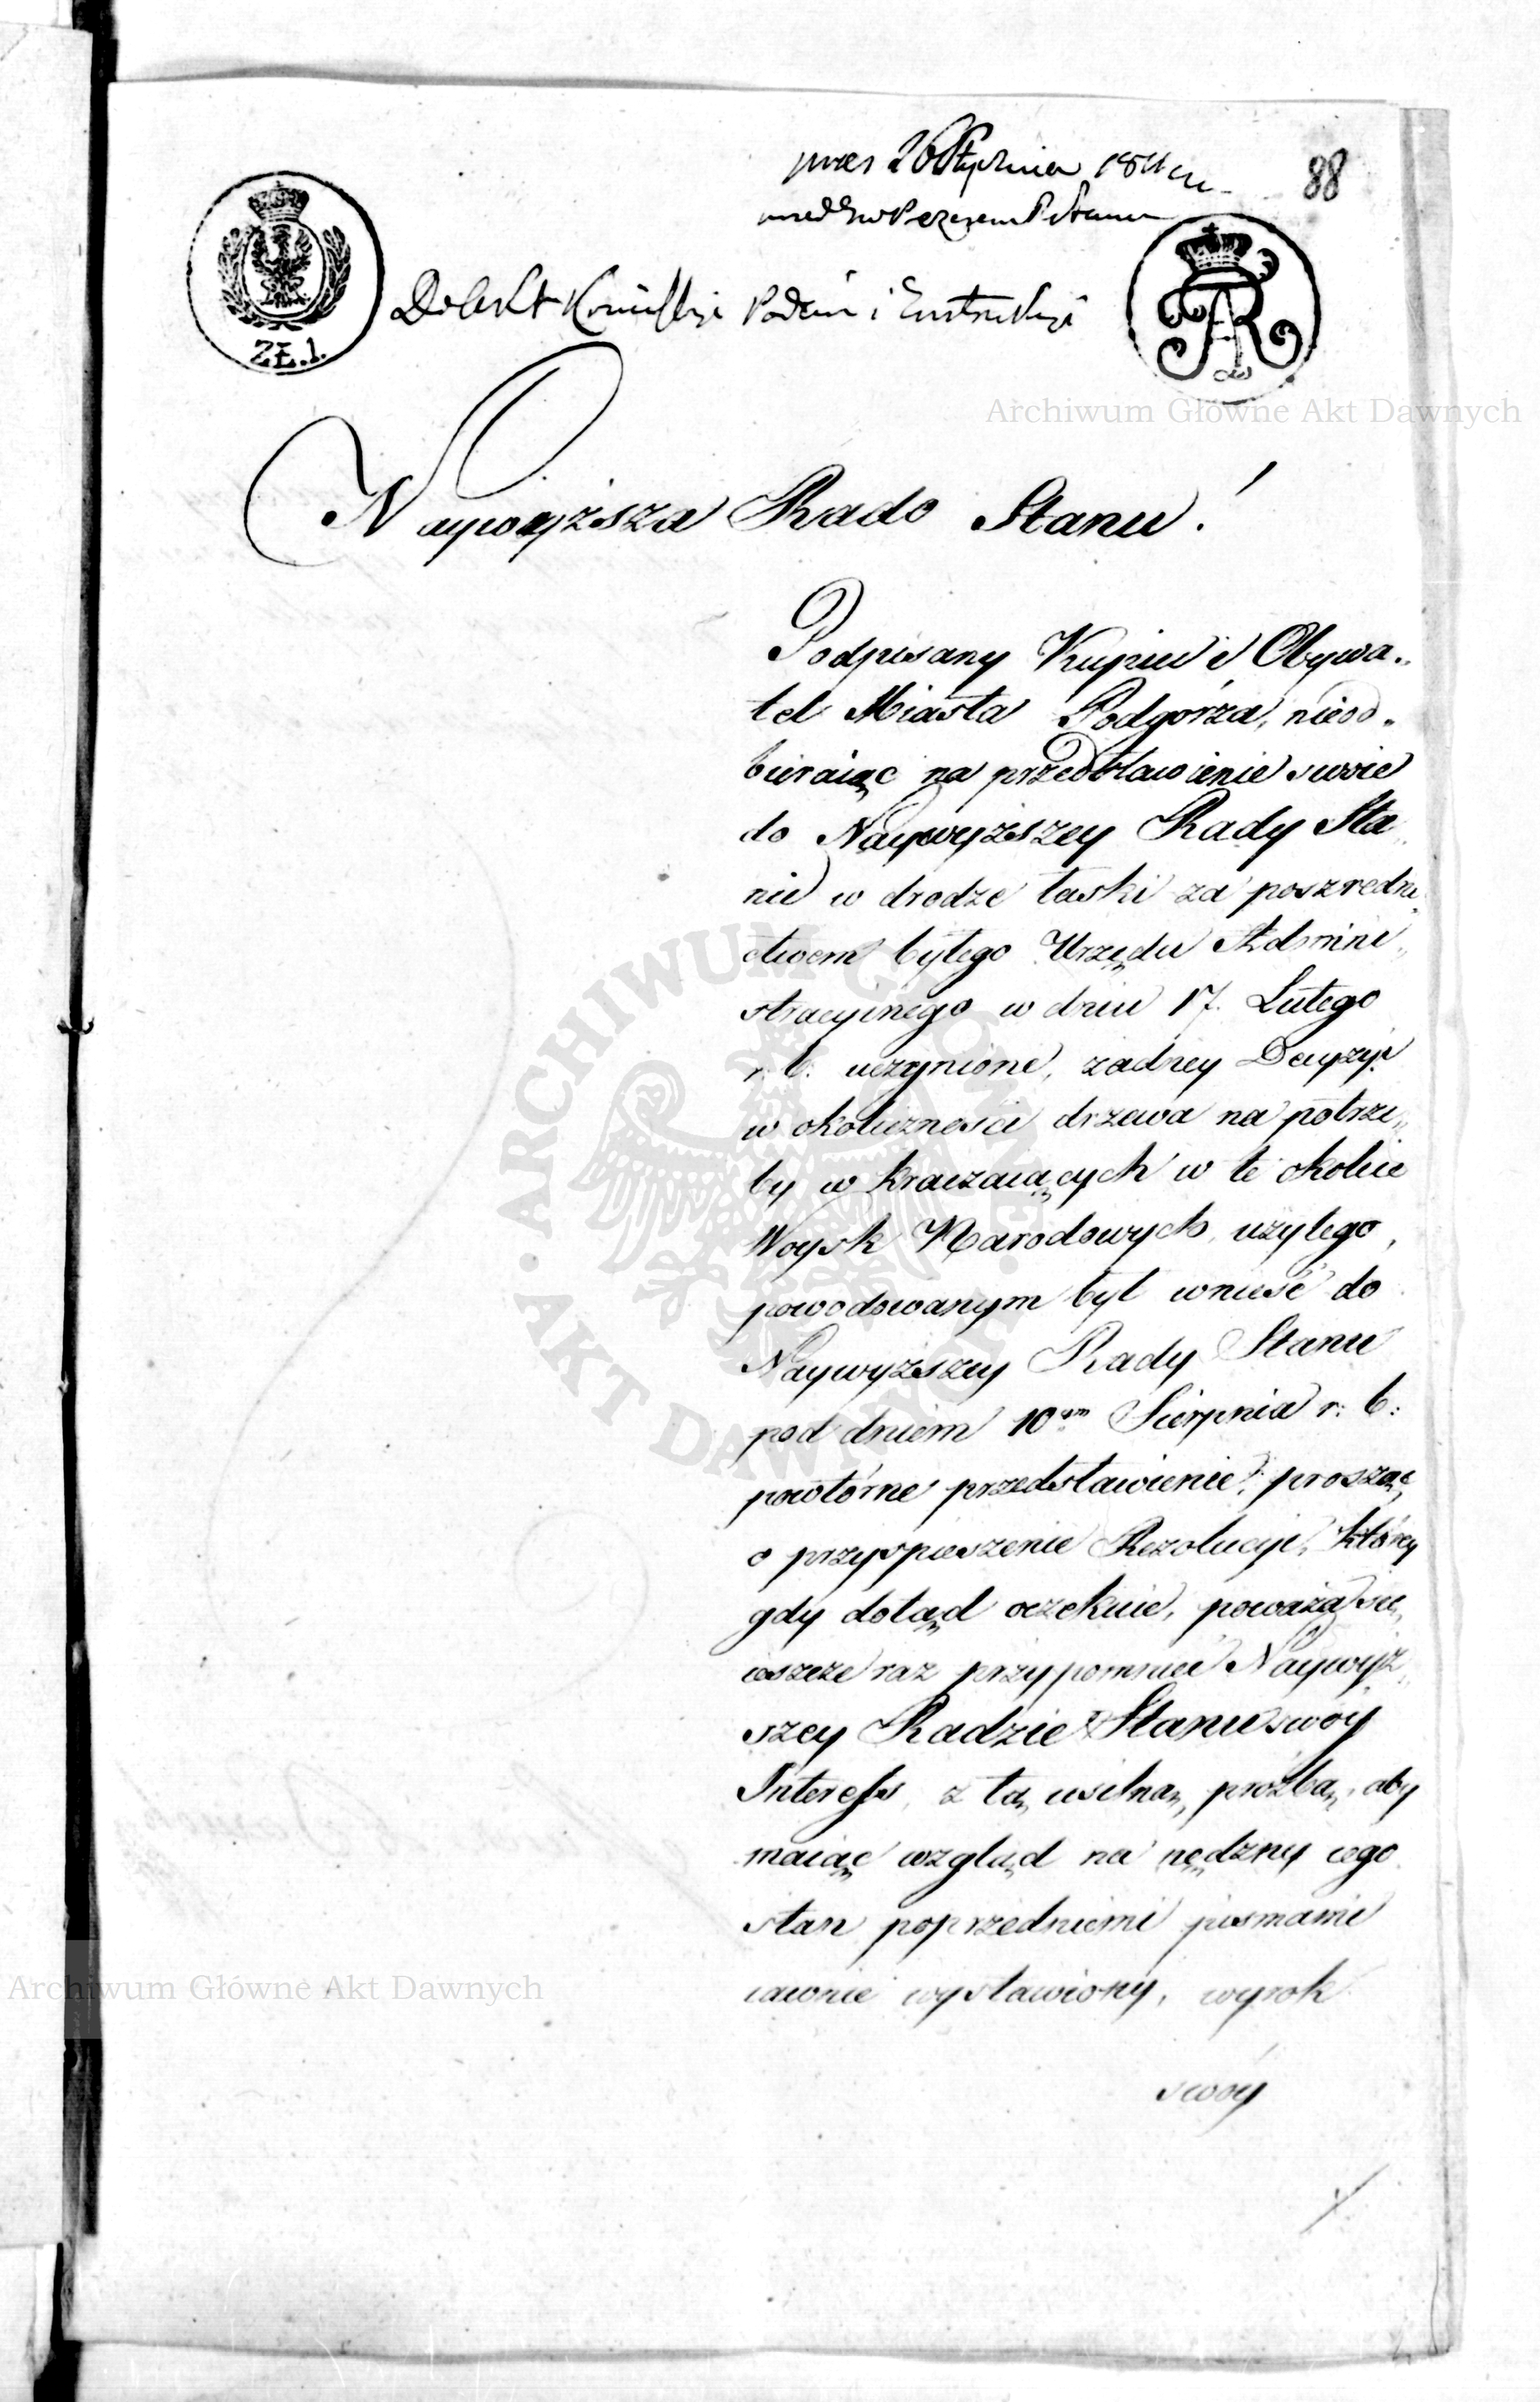 88
ZŁ.1.
Archiwum Główne Akt Dawnych
Naywyższa Rado Stanu!
Podpisany Kupiec i Obywa„
tel Miasta Podgórza, nieod„
bieraiąc na przedstawienie swoie
do Naywyższey Rady Sta„
nu w drodze łaski za poszredni„
ctwem byłego Urzędu Admini„
stracyinego w dniu 17. Lutego
r. b: uczynione, żadney Decyzyi
w okoliczności drzewa na potrze„
by wkraczaiących w te okolice
Woysk Narodowych użytego,
powodowanym był wnieść do
Naywyższey Rady Stanu
pod dniem 10ym Sierpnia r: b:
powtórne przedstawienie, prosząc
o przyspieszenie Rezolucyi, którey
gdy dotąd oczekuie, poważa się
ieszcze raz przypomnieć Naywyż„
szey Radzie Stanu swóy
Interess, z tą usilną prożbą, aby
maiąc wzgląd na nędzny iego
stan poprzedniemi pismami
iawnie wystawiony, wyrok
swóy
Archiwum Główne Akt Dawnych
ARCHIWUM GŁÓWNE AKT DAWNYCH